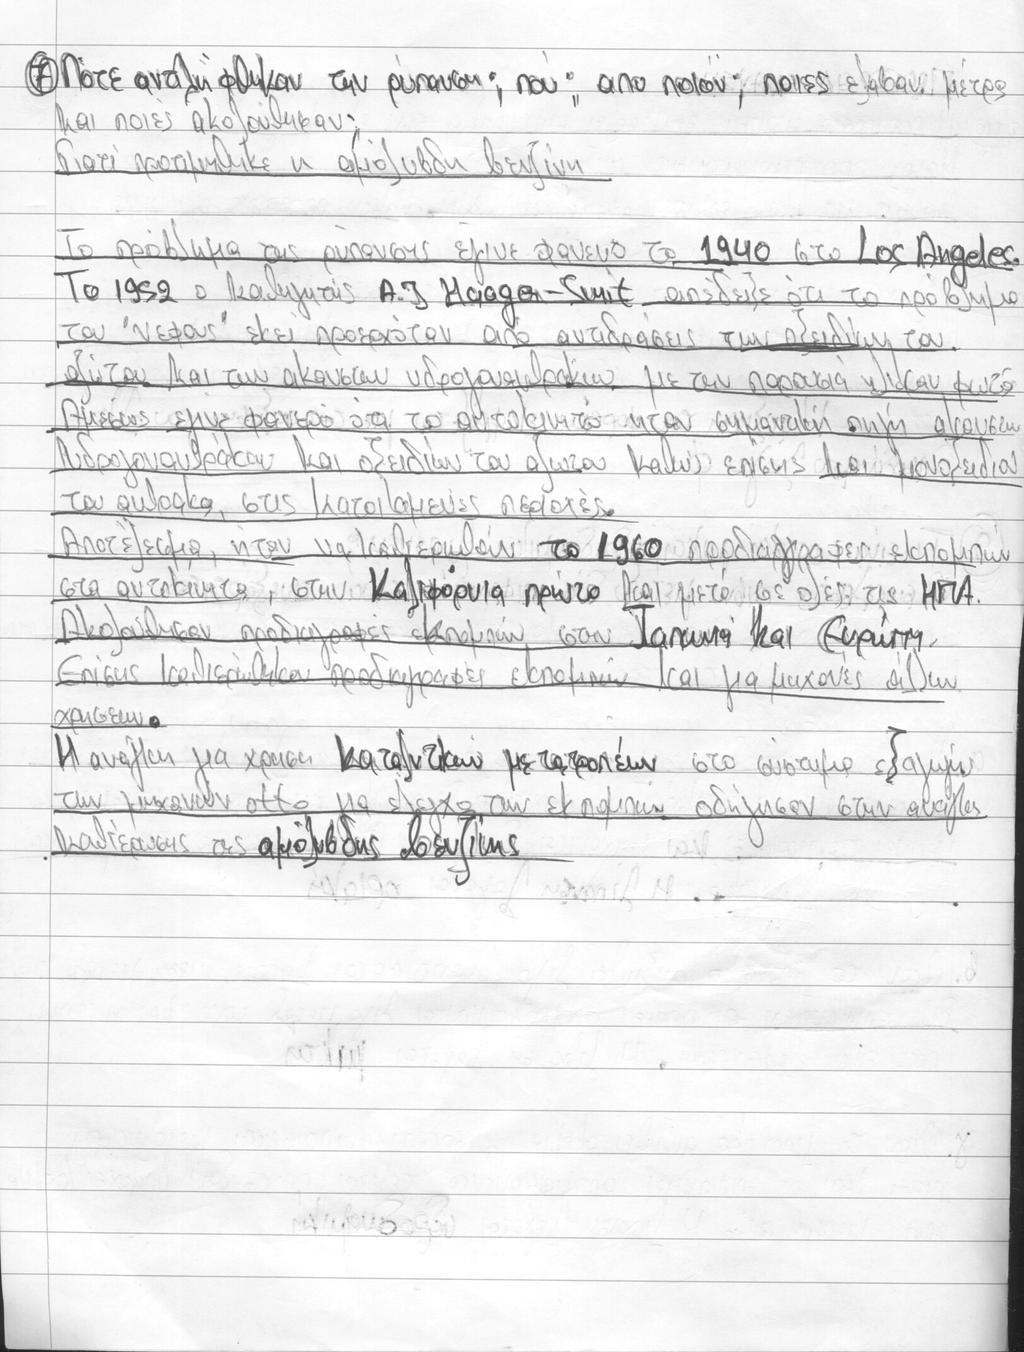 ⑦ Πότε αντιλήφθηκαν την ρύπανση; που; από ποιόν; ποιες έλαβαν μέτρα
και ποιές ακολούθησαν;
Γιατί προτιμήθηκε η αμόλυβδη βενζίνη
Το πρόβλημα της ρύπανσης έγινε φανερό το 1940 στο Los Angeles.
Το 1952 ο καθηγητής A.J Haagen-Smit απέδειξε ότι το πρόβλημα
του "νέφους" εκεί προερχόταν από αντιδράσεις των οξειδίων του
αζώτου και των άκαυστων υδρογονανθράκων με την παρουσία ηλίου φωτό
Αμέσως έγινε φανερό ότι το αυτοκίνητό ήταν σημαντική πηγή άκαυστων
υδρογονανθράκων και οξειδίων του αζώτου καθώς επίσης και μονοξειδίου
του άνθρακα, στις κατοικημένες περιοχές.
Αποτέλεσμα, ήταν να καθιερωθούν το 1960 προδιαγραφές εκπομπών
στα αυτοκίνητα, στην Καλιφόρνια πρώτα και μετά σε όλες τις ΗΠΑ.
Ακολούθησαν προδιαγραφές εκπομπών στην Ιαπωνία και Ευρώπη.
Επίσης καθιερώθηκαν προδιαγραφές εκπομπών και για μηχανές άλλων
χρήσεων.
Η ανάγκη για χρήση καταλυτικών μετατροπέων στο σύστημα εξαγωγής
των μηχανών otto για έλεγχο των εκπομπών οδήγησαν στην ανάγκη
καθιέρωσης της αμόλυβδης βενζίνης